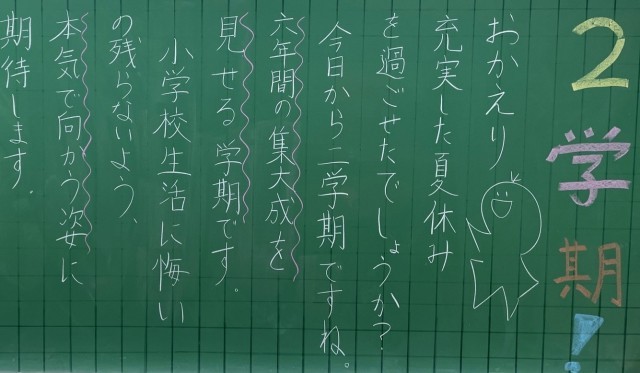 2学期!
おかえり
充実した夏休み
を過ごせたでしょうか?
今日から二学期ですね。
六年間の集大成を
見せる学期です。
小学校生活に悔い
の残らないよう、
本気で向かう姿に
期待します。